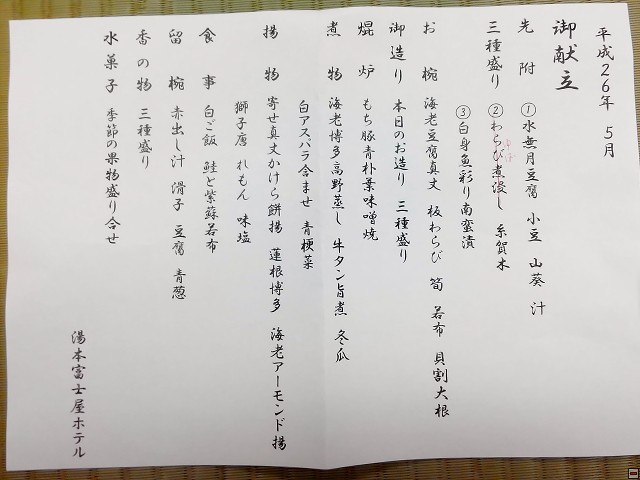 平成26年 5月
御献立
先附 ①水無月豆腐 小豆 山葵 汁
三種盛り ②わらび煮浸し 糸賀木
③白身魚彩り南蛮漬
お椀 海老豆腐真丈 板わらび 筍 若布 貝割大根
御造り 本日のお造り 三種盛り
焜炉 もち豚青朴葉味噌焼
煮物 海老博多高野蒸し 牛タン旨煮 冬瓜
白アスパラ含ませ 青梗菜
揚物 寄せ真丈かけら餅揚 蓮根博多 海老アーモンド揚
獅子唐 れもん 味塩
食事 白ご飯 鮭と紫蘇若布
留椀 赤出し汁 滑子 豆腐 青葱
香の物 三種盛り
水菓子 季節の果物盛り合せ
湯本富士屋ホテル